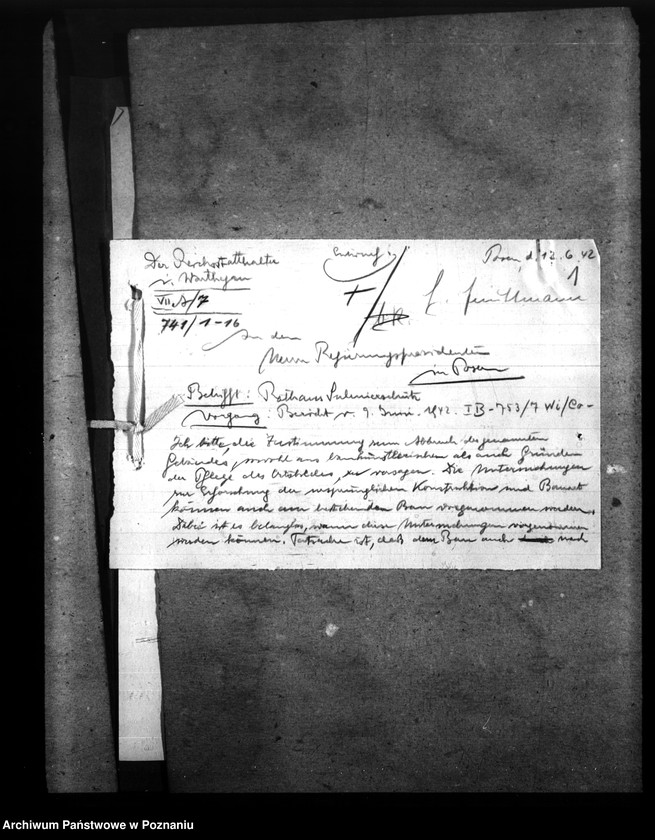 Der Reichsstatthalter
i. Warthegau
VII A/7
741/1-16
Entwurf.
Posen, d. 12.6.42
1
An den
Herrn Regierungspräsidenten
in Posen
Betrifft: Rathaus Sulmierschütz
Vorgang: Bericht v. 9. Juni 1942. IB-753/7 Wi/Co-
Ich bitte, die Zustimmung zum Abbruch des genannten
Gebäudes, sowohl aus baukünstlerischen als auch Gründen
der Pflege des Ortsbildes, zu versagen. Die Untersuchungen
zur Erforschung der ursprünglichen Konstruktion und Bauart
können auch am bestehenden Bau vorgenommen werden.
Dabei ist es belanglos, wann diese Untersuchungen vorgenommen
werden können. Tatsache ist, daß dem Bau auch nach
Archiwum Państwowe w Poznaniu